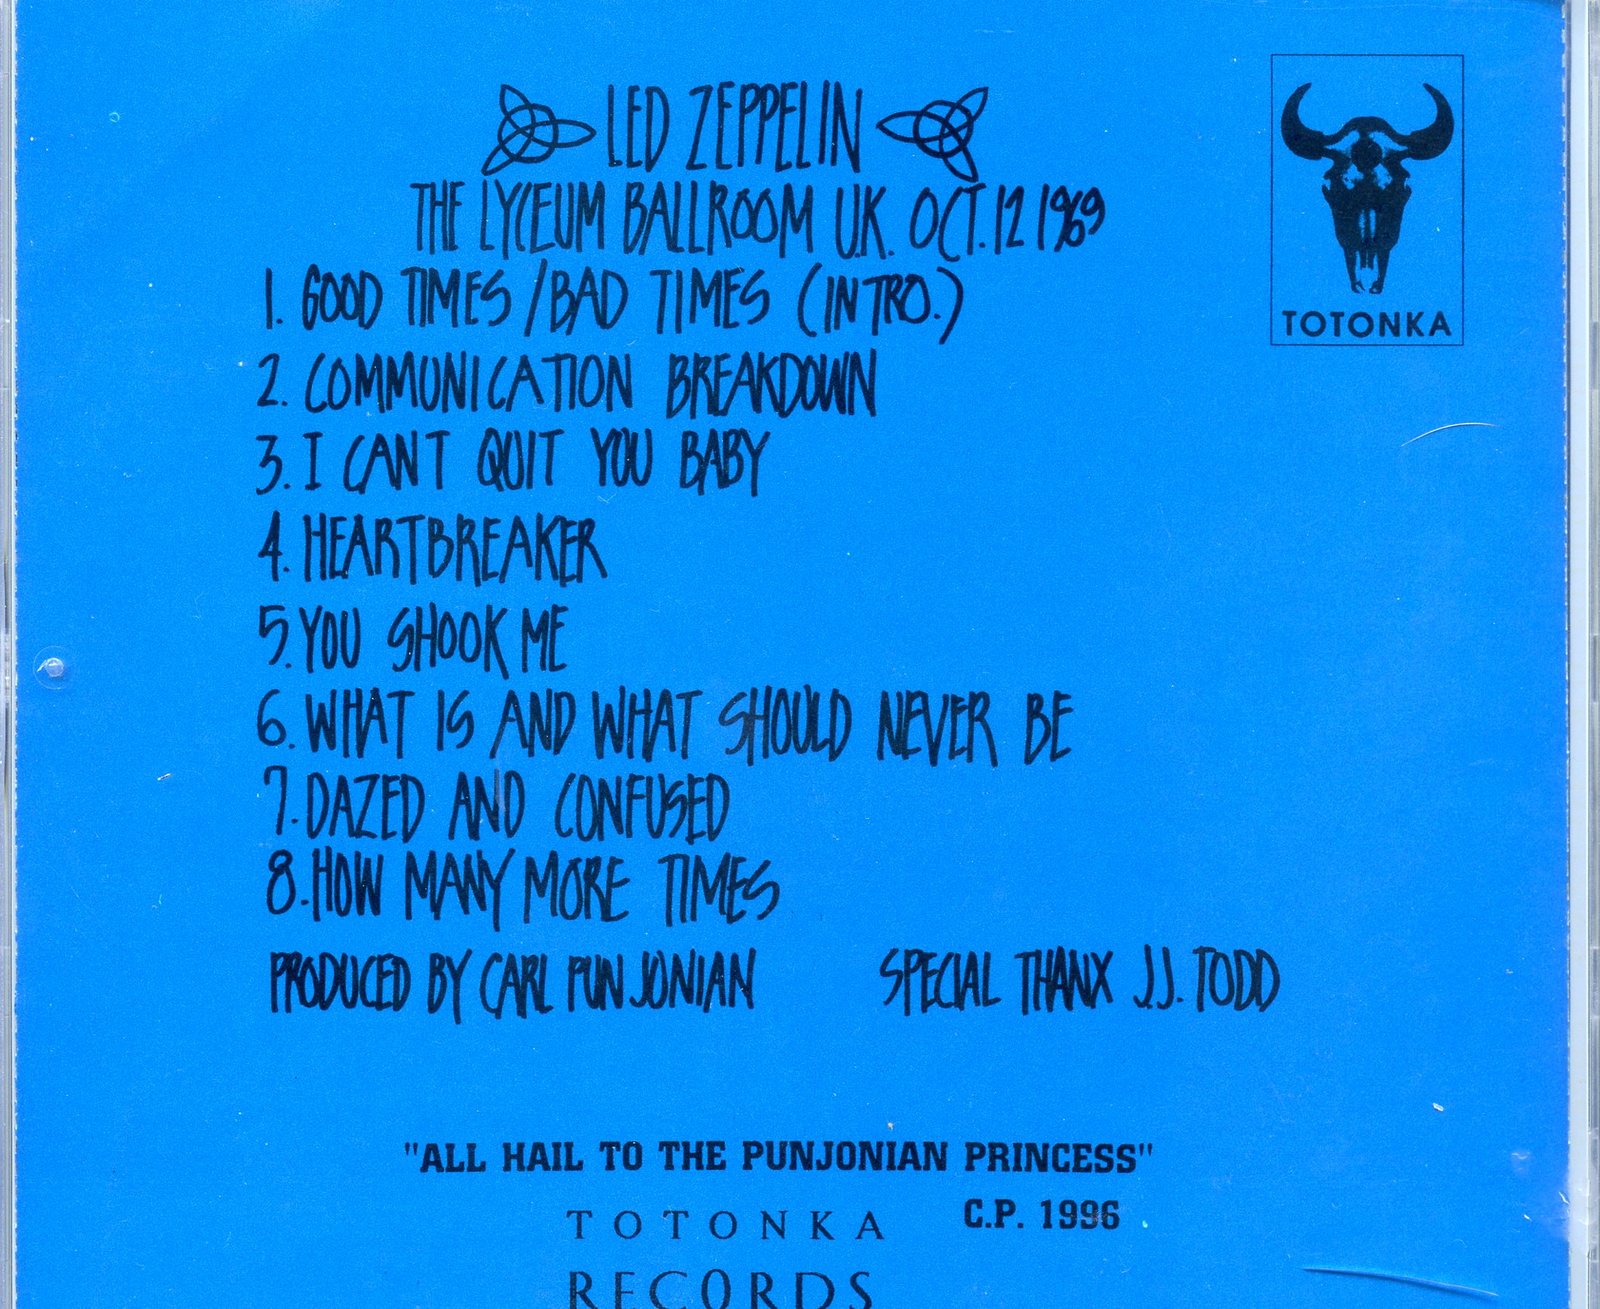 LED ZEPPELIN
THE LYCEUM BALLROOM U.K. OCT. 12 1969
TOTONKA
1. GOOD TIMES / BAD TIMES (INTRO.)
2. COMMUNICATION BREAKDOWN
3. I CAN'T QUIT YOU BABY
4. HEARTBREAKER
5. YOU SHOOK ME
6. WHAT IS AND WHAT SHOULD NEVER BE
7. DAZED AND CONFUSED
8. HOW MANY MORE TIMES
PRODUCED BY CARL PUN JONIAN SPECIAL THANX J.J. TODD
"ALL HAIL TO THE PUNJONIAN PRINCESS"
C.P. 1996
TOTONKA
RECORDS